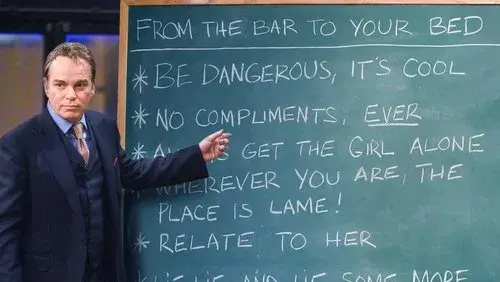 FROM THE BAR TO YOUR BED
* BE DANGEROUS, IT'S COOL
* NO COMPLIMENTS, EVER
* GET THE GIRL ALONE
* WHEREVER YOU ARE, THE
PLACE IS LAME!
* RELATE TO HER
LIE, LIE AND LIE SOME MORE